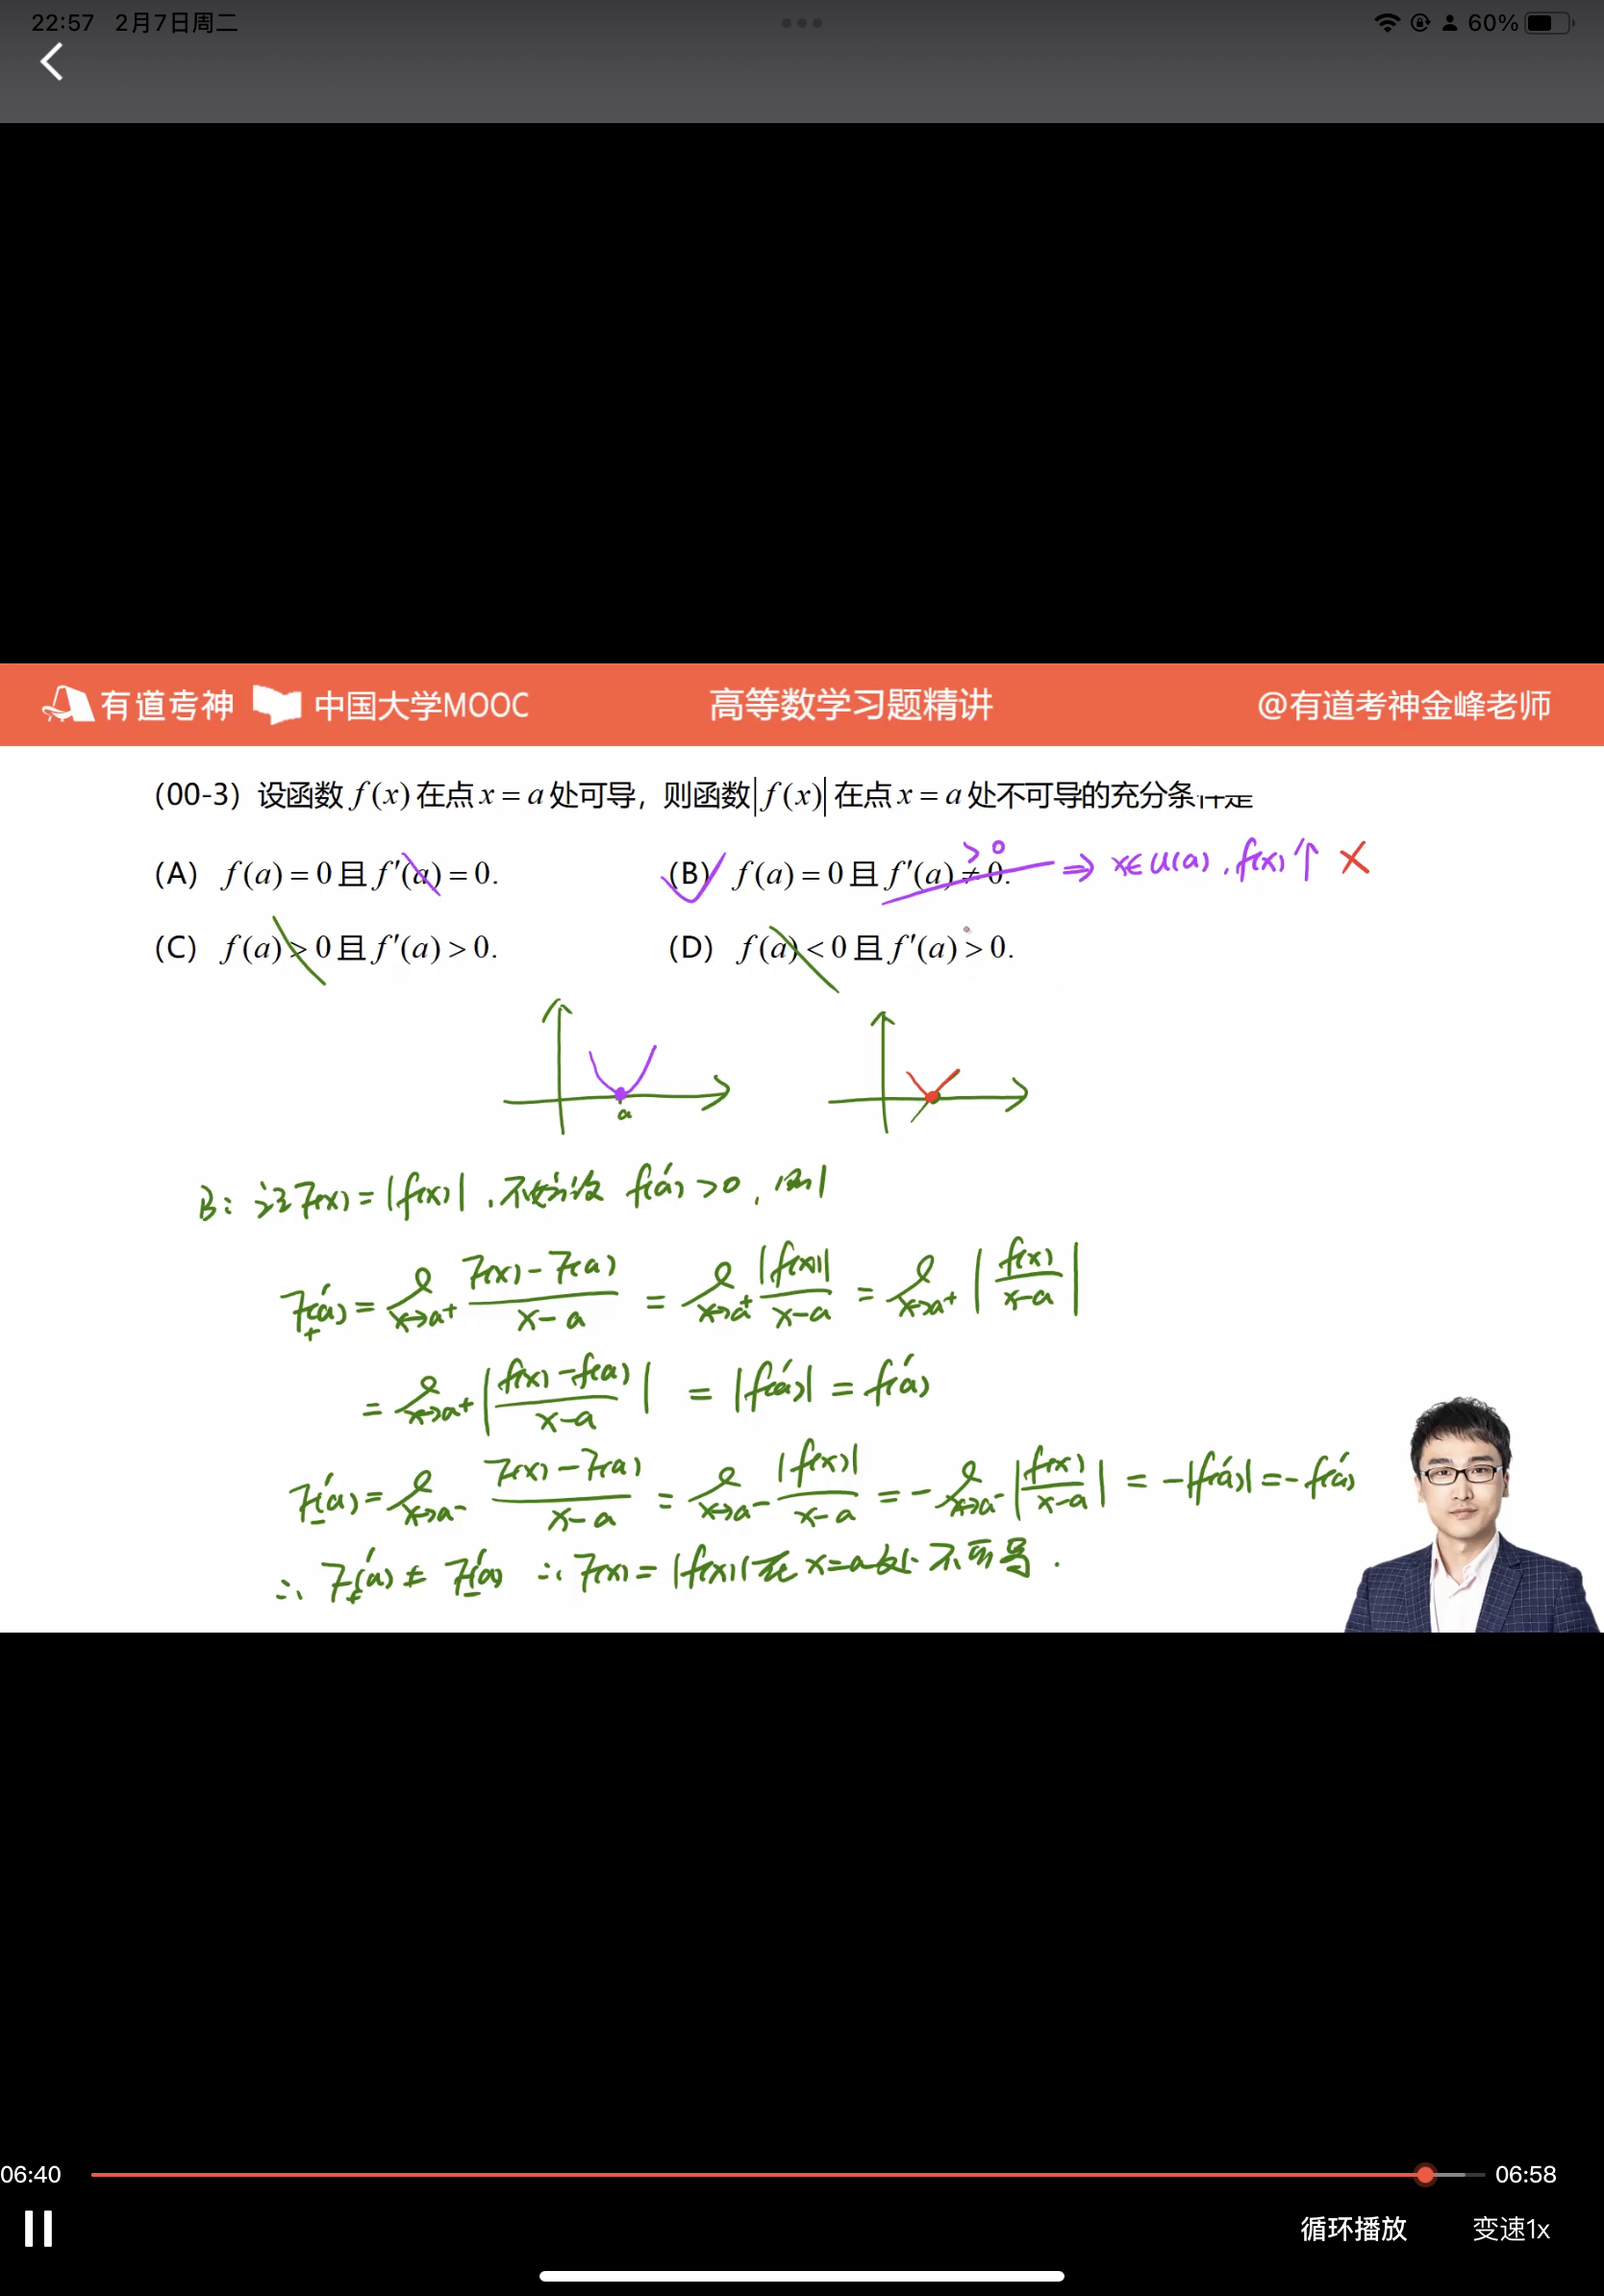 22:57 2月7日周二 60%
有道考神 中国大学MOOC 高等数学习题精讲 @有道考神金峰老师
(00-3) 设函数 f(x) 在点 x = a 处可导，则函数 |f(x)| 在点 x = a 处不可导的充分条件是
(A) f(a) = 0 且 f′(a) = 0. (B) f(a) = 0 且 f′(a) ≠ 0. >0 ⇒ x∈U(a), f(x)↑ ×
(C) f(a) > 0 且 f′(a) > 0. (D) f(a) < 0 且 f′(a) > 0.
a
B: 记F(x) = |f(x)|, 不妨设 f′(a) > 0, 则
F₊′(a) = lim x→a⁺ (F(x) - F(a))/(x - a) = lim x→a⁺ |f(x)|/(x-a) = lim x→a⁺ |f(x)/(x-a)|
= lim x→a⁺ |(f(x) - f(a))/(x-a)| = |f′(a)| = f′(a)
F₋′(a) = lim x→a⁻ (F(x) - F(a))/(x - a) = lim x→a⁻ |f(x)|/(x-a) = - lim x→a⁻ |f(x)/(x-a)| = -|f′(a)| = -f′(a)
∴ F₊′(a) ≠ F₋′(a) ∴ F(x) = |f(x)| 在 x=a 处不可导.
06:40 06:58
循环播放 变速1x